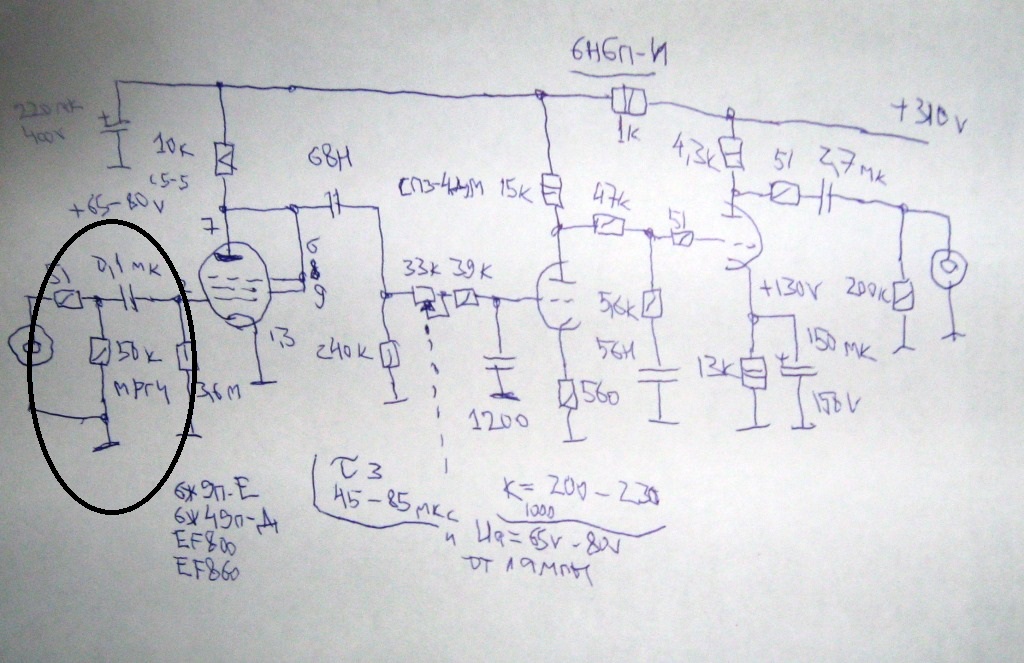 6Н6П-И
220 мк
400V
10к
С5-5
+65-80V
68Н
1к
+310V
4,3к
51
2,7 мк
СП3-4дМ
15к
47к
51
7
6
8
9
51
0,1 мк
33к
39к
+130V
200к
50к
МРГЧ
3,6м
1,3
240к
5,6к
56Н
150 мк
150V
13к
1200
560
6Ж9П-Е
6Ж49П-Д
EF800
EF860
τ3
45-85 мкс
K = 200 - 230
1000
и Ua = 65V - 80V
от лампы